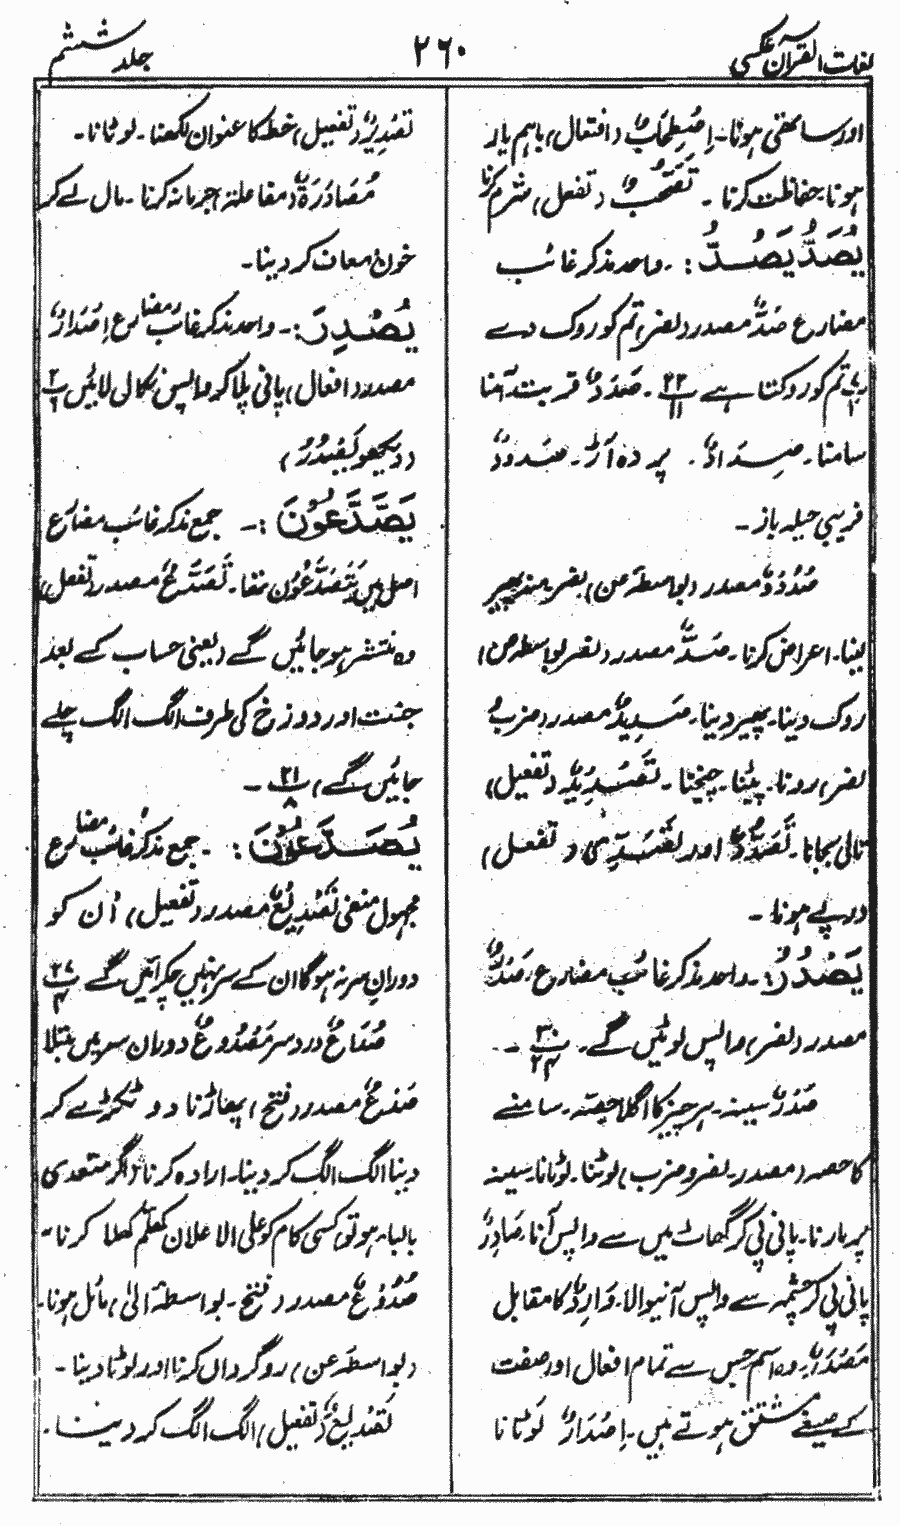 لغات القرآن عکسی
۲۶۰
جلد ششم
اور ساتھی ہونا۔ اِصْطِحَابٌ (افتعال) باہم یار
ہونا۔ حفاظت کرنا ۔ تَصَحُّبٌ (تفعل) شرم کرنا
یُصَدُّ یَصُدُّ :۔ واحد مذکر غائب
مضارع صَدٌّ مصدر (نصر) تم کو روک دے
تم کو روکتا ہے ۲۲/۱۱ ۔ صَدَدٌ قریب۔ آمنا
سامنا۔ صِدَادٌ ۔ پردہ آڑ۔ صَدودٌ
فریبی حیلہ باز۔
صُدُوْدٌ مصدر (بواسطہ عن) نصر۔ منہ پھیر
لینا۔ اعراض کرنا۔ صَدٌّ مصدر (نصر بواسطہ عن)
روک دینا۔ پھیر دینا۔ صَدِیدٌ مصدر (ضرب و
نصر) رونا۔ پٹینا۔ چیخنا ۔ تَصْدِیْدٌ (تفعیل)
تالی بجانا۔ تَصَدُّدٌ اور تَصَدِّی (تفعل)
درپے ہونا ۔
یَصْدُرُ :۔ واحد مذکر غائب مضارع، صَدْرٌ
مصدر (نصر) واپس لوٹیں گے ۔ ۳۰/۲۴ ۔
صَدْرٌ سینہ۔ ہر چیز کا اگلا حصہ۔ سامنے
کا حصہ (مصدر۔ نصر و ضرب) لوٹنا۔ لوٹانا۔ سینہ
پر مارنا۔ پانی پی کر گھاٹ میں سے واپس آنا۔ صَادِرٌ
پانی پی کر چشمہ سے واپس آنیوالا۔ وَارِدٌ کا مقابل
مَصْدَرٌ۔ وہ اسم جس سے تمام افعال اور صفت
کے صیغے مشتق ہوتے ہیں۔ اِصْدَارٌ لوٹانا
تَصْدِیْرٌ (تفعیل) خط کا عنوان لکھنا۔ لوٹانا۔
مُصَادَرَۃٌ (مفاعلۃ) جرمانہ کرنا۔ مال لے کر
خون معاف کر دینا۔
یُصْدِرَ :۔ واحد مذکر غائب مضارع اِصْدَارٌ
مصدر (افعال) پانی پلا کر واپس نکال لائیں
(دیکھو یَصْدُرُ)
یَصَّدَّعُوْنَ :۔ جمع مذکر غائب مضارع
اصل میں یَتَصَدَّعُوْنَ تھا۔ تَصَدُّعٌ مصدر (تفعل)
وہ منتشر ہو جائیں گے (یعنی حساب کے بعد
جنت اور دوزخ کی طرف الگ الگ چلے
جائیں گے) ۲۱/۸ ۔
یُصَدَّعُوْنَ :۔ جمع مذکر غائب مضارع
مجہول منفی تَصْدِیْعٌ مصدر (تفعیل) اُن کو
دورانِ سر نہ ہوگا ان کے سر نہیں چکرائیں گے ۲۷/۴
صُدَاعٌ درد سر مَصْدُوْعٌ دوران سر میں مبتلا
صَدْعٌ مصدر (فتح) پھاڑنا دو ٹکڑے کر
دینا الگ الگ کر دینا۔ ارادہ کرنا (اگر متعدی
بالباء ہو تو) کسی کام کو علی الاعلان کھلم کھلا کرنا۔
صُدُوْعٌ مصدر (فتح۔ بواسطہ الیٰ) مائل ہونا۔
(بواسطہ عن) روگرداں کرنا اور لوٹا دینا ۔
تَصْدِیعٌ (تفعیل) الگ الگ کر دینا۔